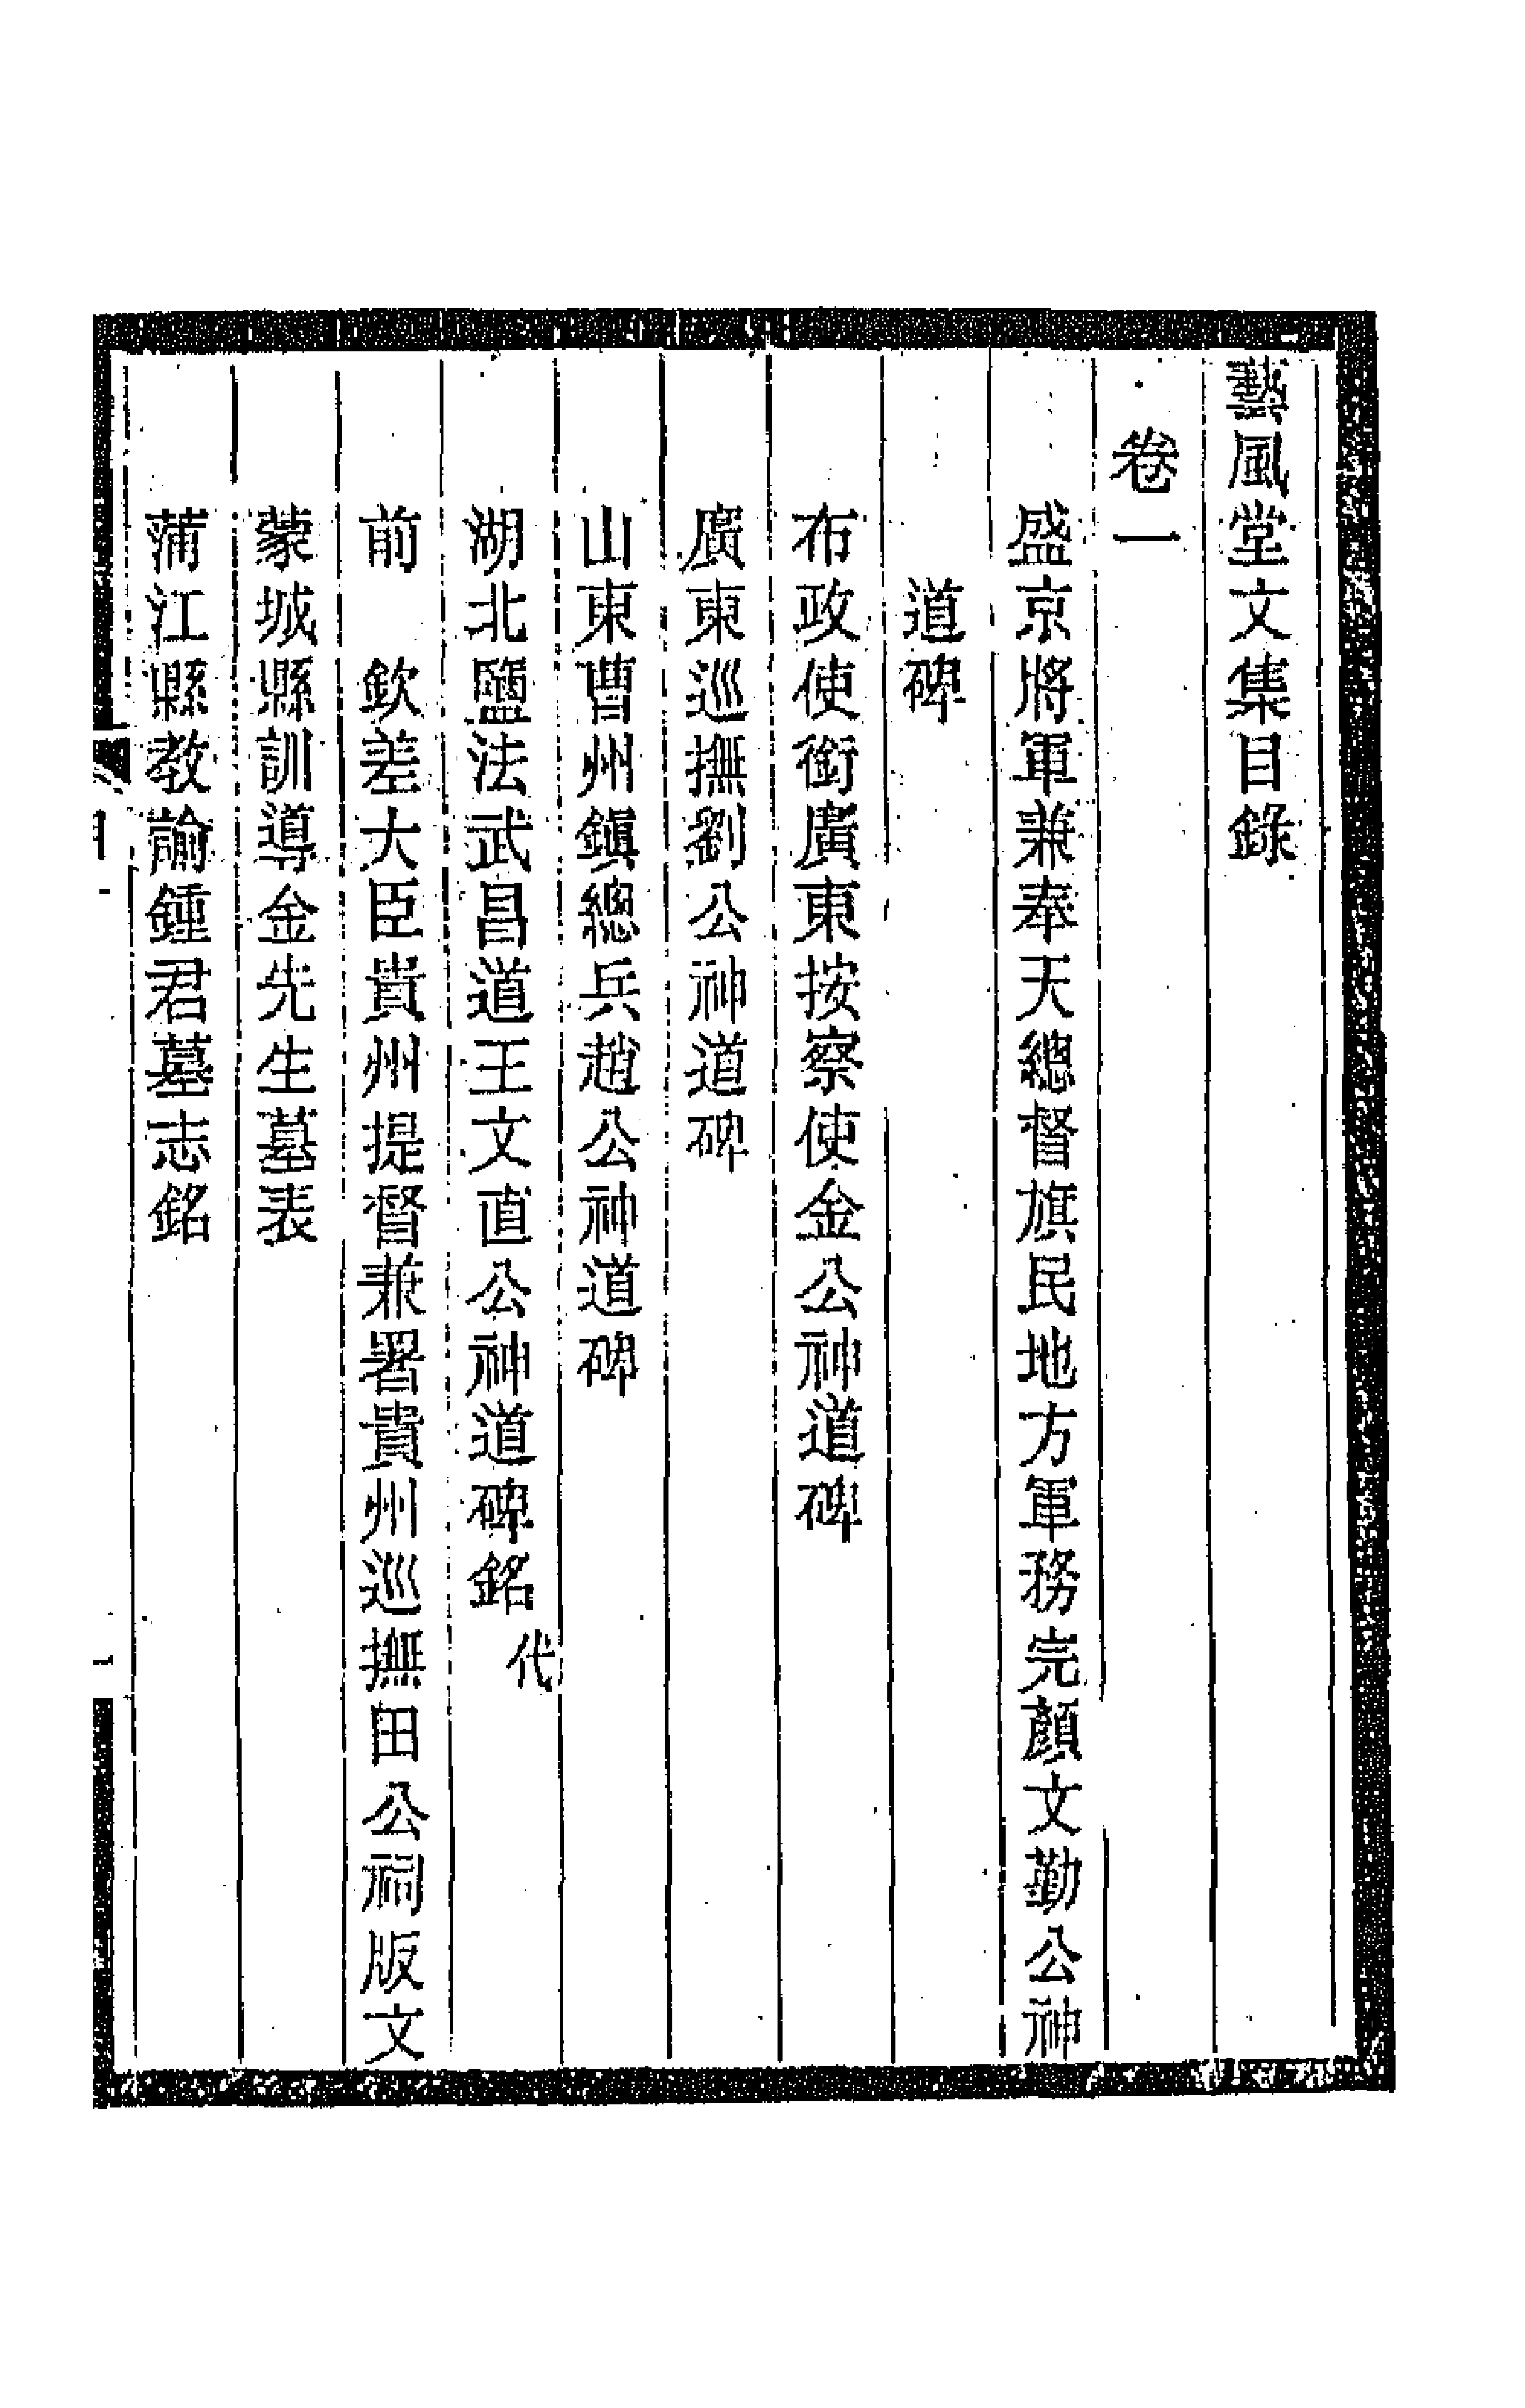 藝風堂文集目錄
卷一
盛京將軍兼奉天總督旗民地方軍務完顏文勤公神
道碑
布政使銜廣東按察使金公神道碑
廣東巡撫劉公神道碑
山東曹州鎭總兵趙公神道碑
湖北鹽法武昌道王文直公神道碑銘代
前　欽差大臣貴州提督兼署貴州巡撫田公祠版文
蒙城縣訓導金先生墓表
蒲江縣教諭鍾君墓志銘